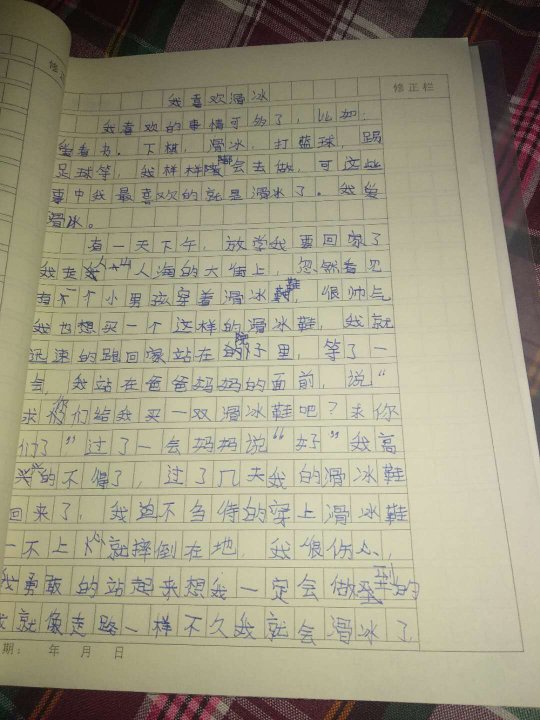 修正栏
我喜欢滑冰
我喜欢的事情可多了，比如：
爱看书。下棋，滑冰，打蓝球，踢
足球等，我样样都会去做，可这些
事中我最喜欢的就是滑冰了。我爱
滑冰。
有一天下午，放学我要回家了
我走人山人海的大街上，忽然看见
有一个小男孩穿着滑冰鞋，很帅气
我也想买一个这样的滑冰鞋，我就
迅速的跑回家站在院子里，等了一
会，我站在爸爸妈妈的面前，说“
求你们给我买一双滑冰鞋吧？求你
们了”过了一会妈妈说“好”我高
兴的不得了，过了几天我的滑冰鞋
回来了，我迫不及待的穿上滑冰鞋
一不上心就摔倒在地，我很伤心，
我勇敢的站起来想我一定会做到的
就像走路一样不久我就会滑冰了
期： 年 月 日